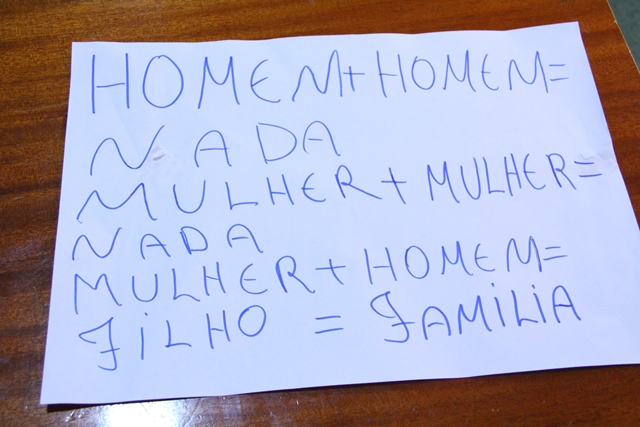 HOMEM+HOMEM=
NADA
MULHER+MULHER=
NADA
MULHER+HOMEM=
FILHO = FAMILIA